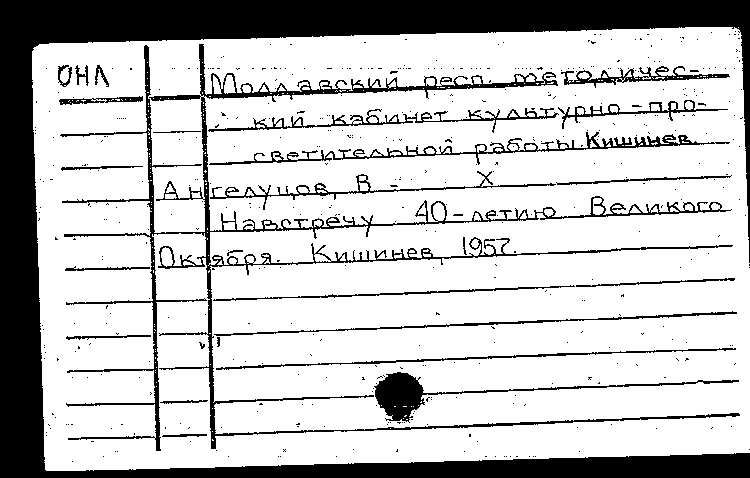 ОНЛ
Молдавский респ. методичес-
кий кабинет культурно-про-
светительной работы. Кишинев.
Ангелуцов, В - X
Навстречу 40-летию Великого
Октября. Кишинев, 1957.